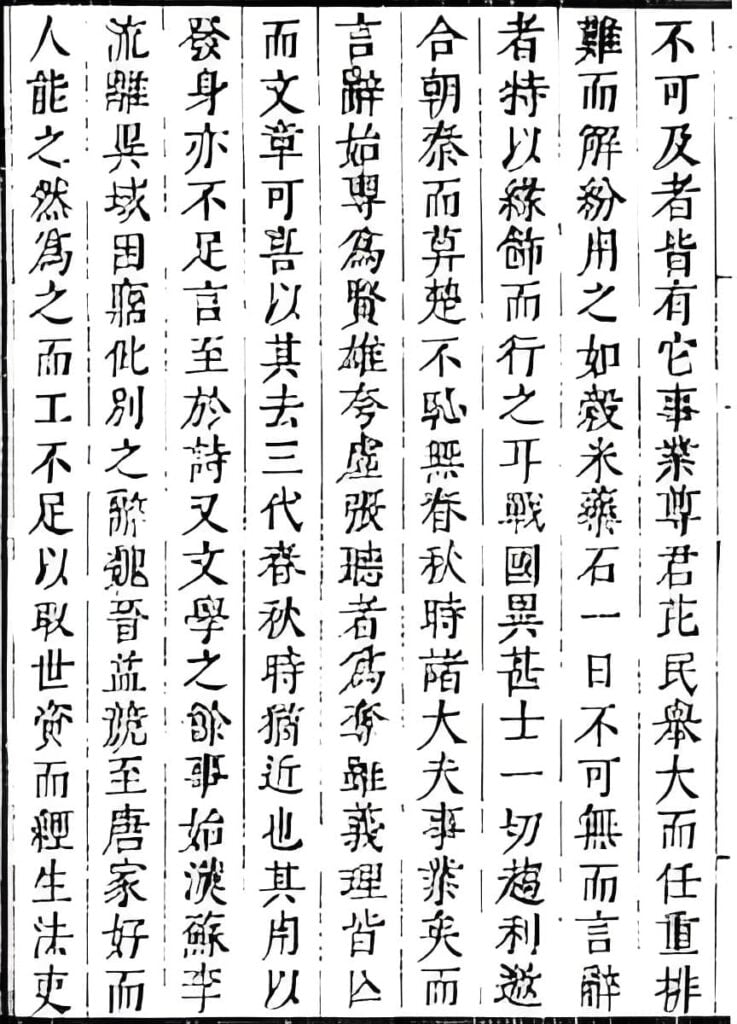 不可及者皆有它事業尊君庇民舉大而任重排
難而解紛用之如穀米藥石一日不可無而言辭
者特以緣飾而行之耳戰國異甚士一切趨利邀
合朝秦而暮楚不恥無春秋時諸大夫事業矣而
言辭始專爲賢雄夸虛張聽者爲奪雖義理皆亡
而文章可喜以其去三代春秋時猶近也其用以
發身亦不足言至於詩又文學之餘事始漢蘇李
流離異域困窮仳別之辭魏晉益競至唐家好而
人能之然爲之而工不足以取世資而經生法吏